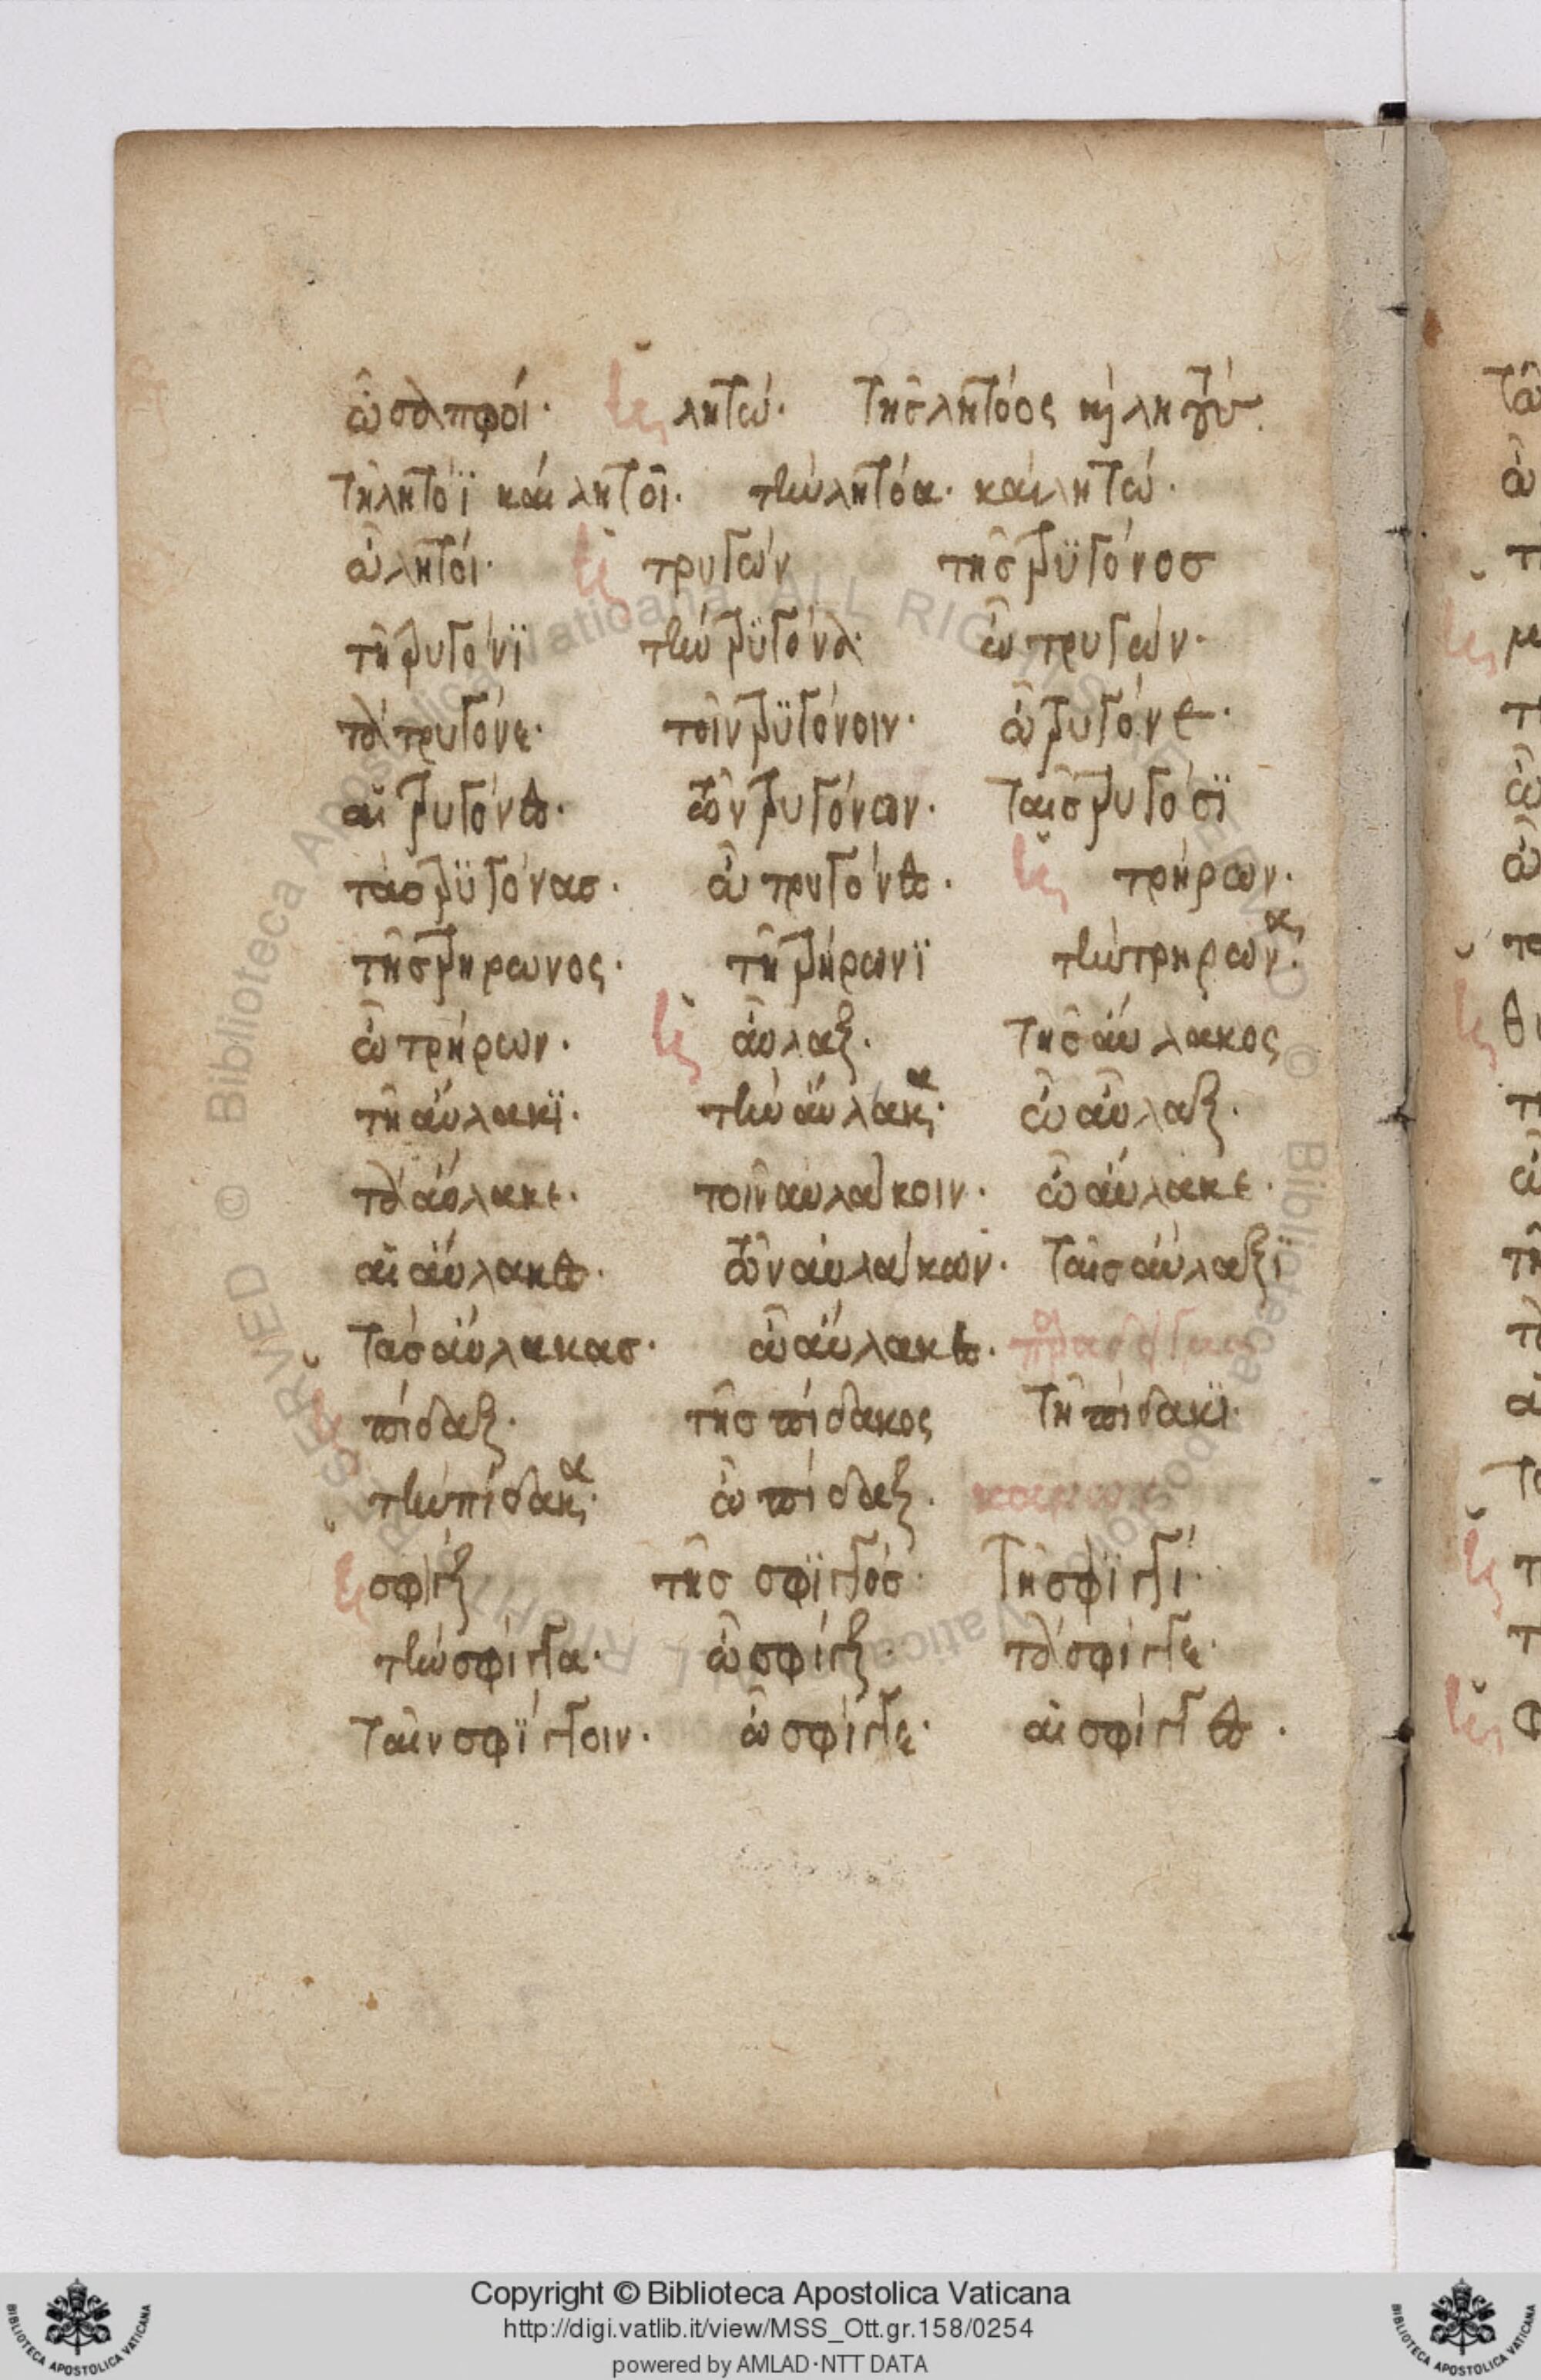 ὦ σαπφοί· λητώ· τῆς λητόος κὶ λητοῦς·
τῆ λητόϊ καὶ λητοῖ· τὴν λητόα· καὶ λητώ·
ὦ λητοί· τρυγών τῆς τρϋγόνοσ
τῆ τρυγόνϊ τὴν τρϋγόνα· ὦ τρυγών·
τὰ τρυγόνε· τοῖν τρϋγόνοιν· ὦ τρυγόνε·
αἱ τρυγόνες· τῶν τρυγόνων· ταῖς τρυγόσϊ
τὰς τρϋγόνας· ὦ τρυγόνες· τρήρων·
τῆς τρήρωνος· τῆ τρήρωνϊ τὴν τρήρωνα·
ὦ τρήρων· αὖλαξ· τῆς αὔλακος
τῆ αὔλακϊ· τὴν αὔλακα· ὦ αὖλαξ·
τὰ αὔλακε· τοῖν αὐλάκοιν· ὦ αὔλακε·
αἱ αὔλακες· τῶν αὐλάκων· ταῖς αὔλαξϊ
τὰς αὔλακας· ὦ αὔλακες·
πίδαξ· τῆς πίδακος τῆ πίδακϊ·
τὴν πίδακα· ὦ πίδαξ·
σφίγξ τῆς σφϊγγός· τῆ σφϊγγί·
τὴν σφίγγα· ὦ σφίγξ· τὰ σφίγγε·
ταῖν σφϊγγοιν· ὦ σφίγγε· αἱ σφίγγες·
Copyright © Biblioteca Apostolica Vaticana
http://digi.vatlib.it/view/MSS_Ott.gr.158/0254
powered by AMLAD·NTT DATA